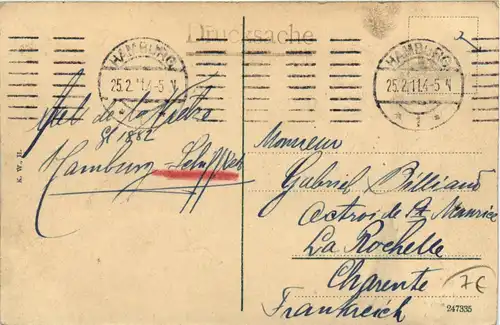 Drucksache
HAMBURG
25.2.11.4-5 N
* 1 *
HAMBURG
25.2.11.4-5 N
* 1 *
de
St 1882
Hamburg
K. W. H.
Monsieur
Gabriel Billiaud
Octroi de St Maurice
La Rochelle
Charente
Frankreich
7€
247335